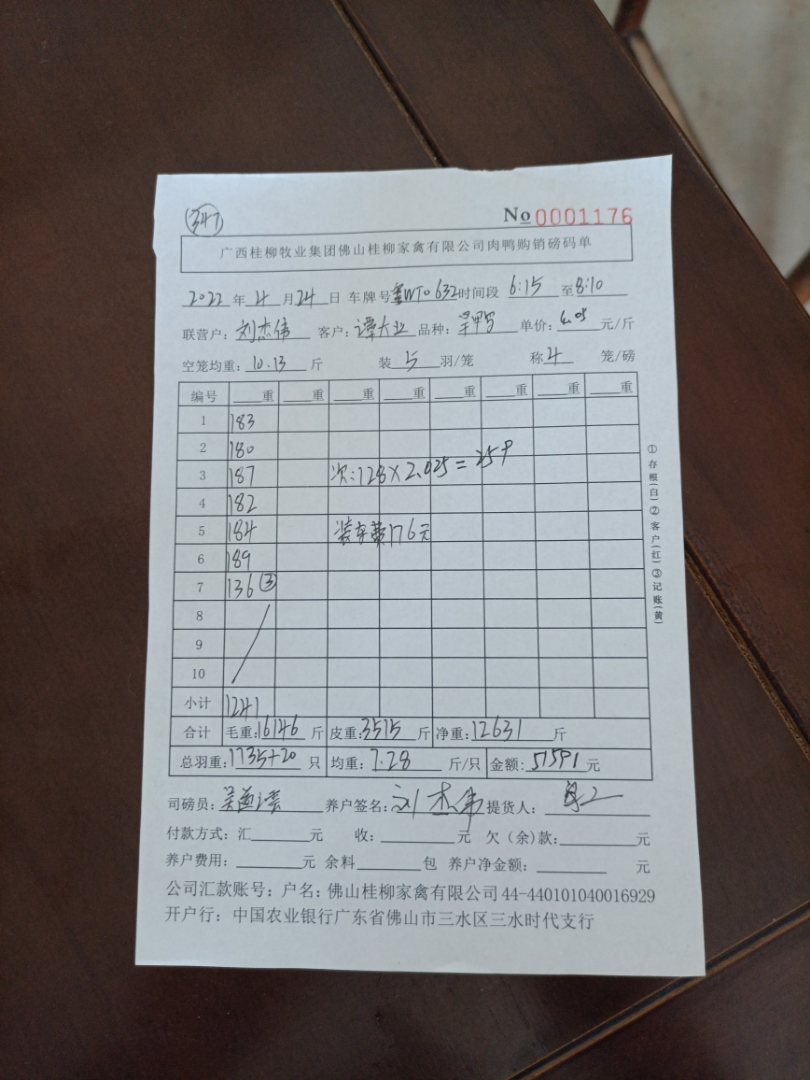 347
No 0001176
广西桂柳牧业集团佛山桂柳家禽有限公司肉鸭购销磅码单
2022 年 4 月 24 日 车牌号 WT0632 时间段 6:15 至 8:10
联营户: 刘杰伟 客户: 谭大业 品种: 单价: 4.05 元/斤
空笼均重: 10.13 斤 装 5 羽/笼 称 4 笼/磅
编号 重 重 重 重 重 重 重 重
1 183
2 180
3 187 次:128×2.025=259
4 182
5 184 装车费176元
6 189
7 136 ③
8
9
10
小计 1241
合计 毛重: 16146 斤 皮重: 3515 斤 净重: 12631 斤
总羽重: 1735+20 只 均重: 7.28 斤/只 金额: 51591 元
司磅员: 养户签名: 刘杰伟 提货人:
付款方式: 汇 元 收: 元 欠(余)款: 元
养户费用: 元 余料 包 养户净金额: 元
公司汇款账号: 户名: 佛山桂柳家禽有限公司 44-440101040016929
开户行: 中国农业银行广东省佛山市三水区三水时代支行
①存根(白)②客户(红)③记账(黄)